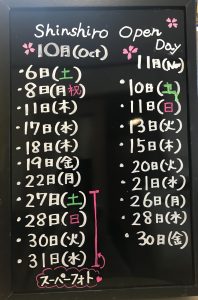 Shinshiro Open Day
10月(Oct)
・6日(土)
・8日(月祝)
・11日(木)
・17日(水)
・18日(木)
・19日(金)
・22日(月)
・27日(土)
・28日(日)
・30日(火)
・31日(水)
スーパーフォト
11月(Nov)
・10日(土)
・11日(日)
・13日(火)
・15日(木)
・20日(火)
・21日(水)
・26日(月)
・28日(水)
・30日(金)